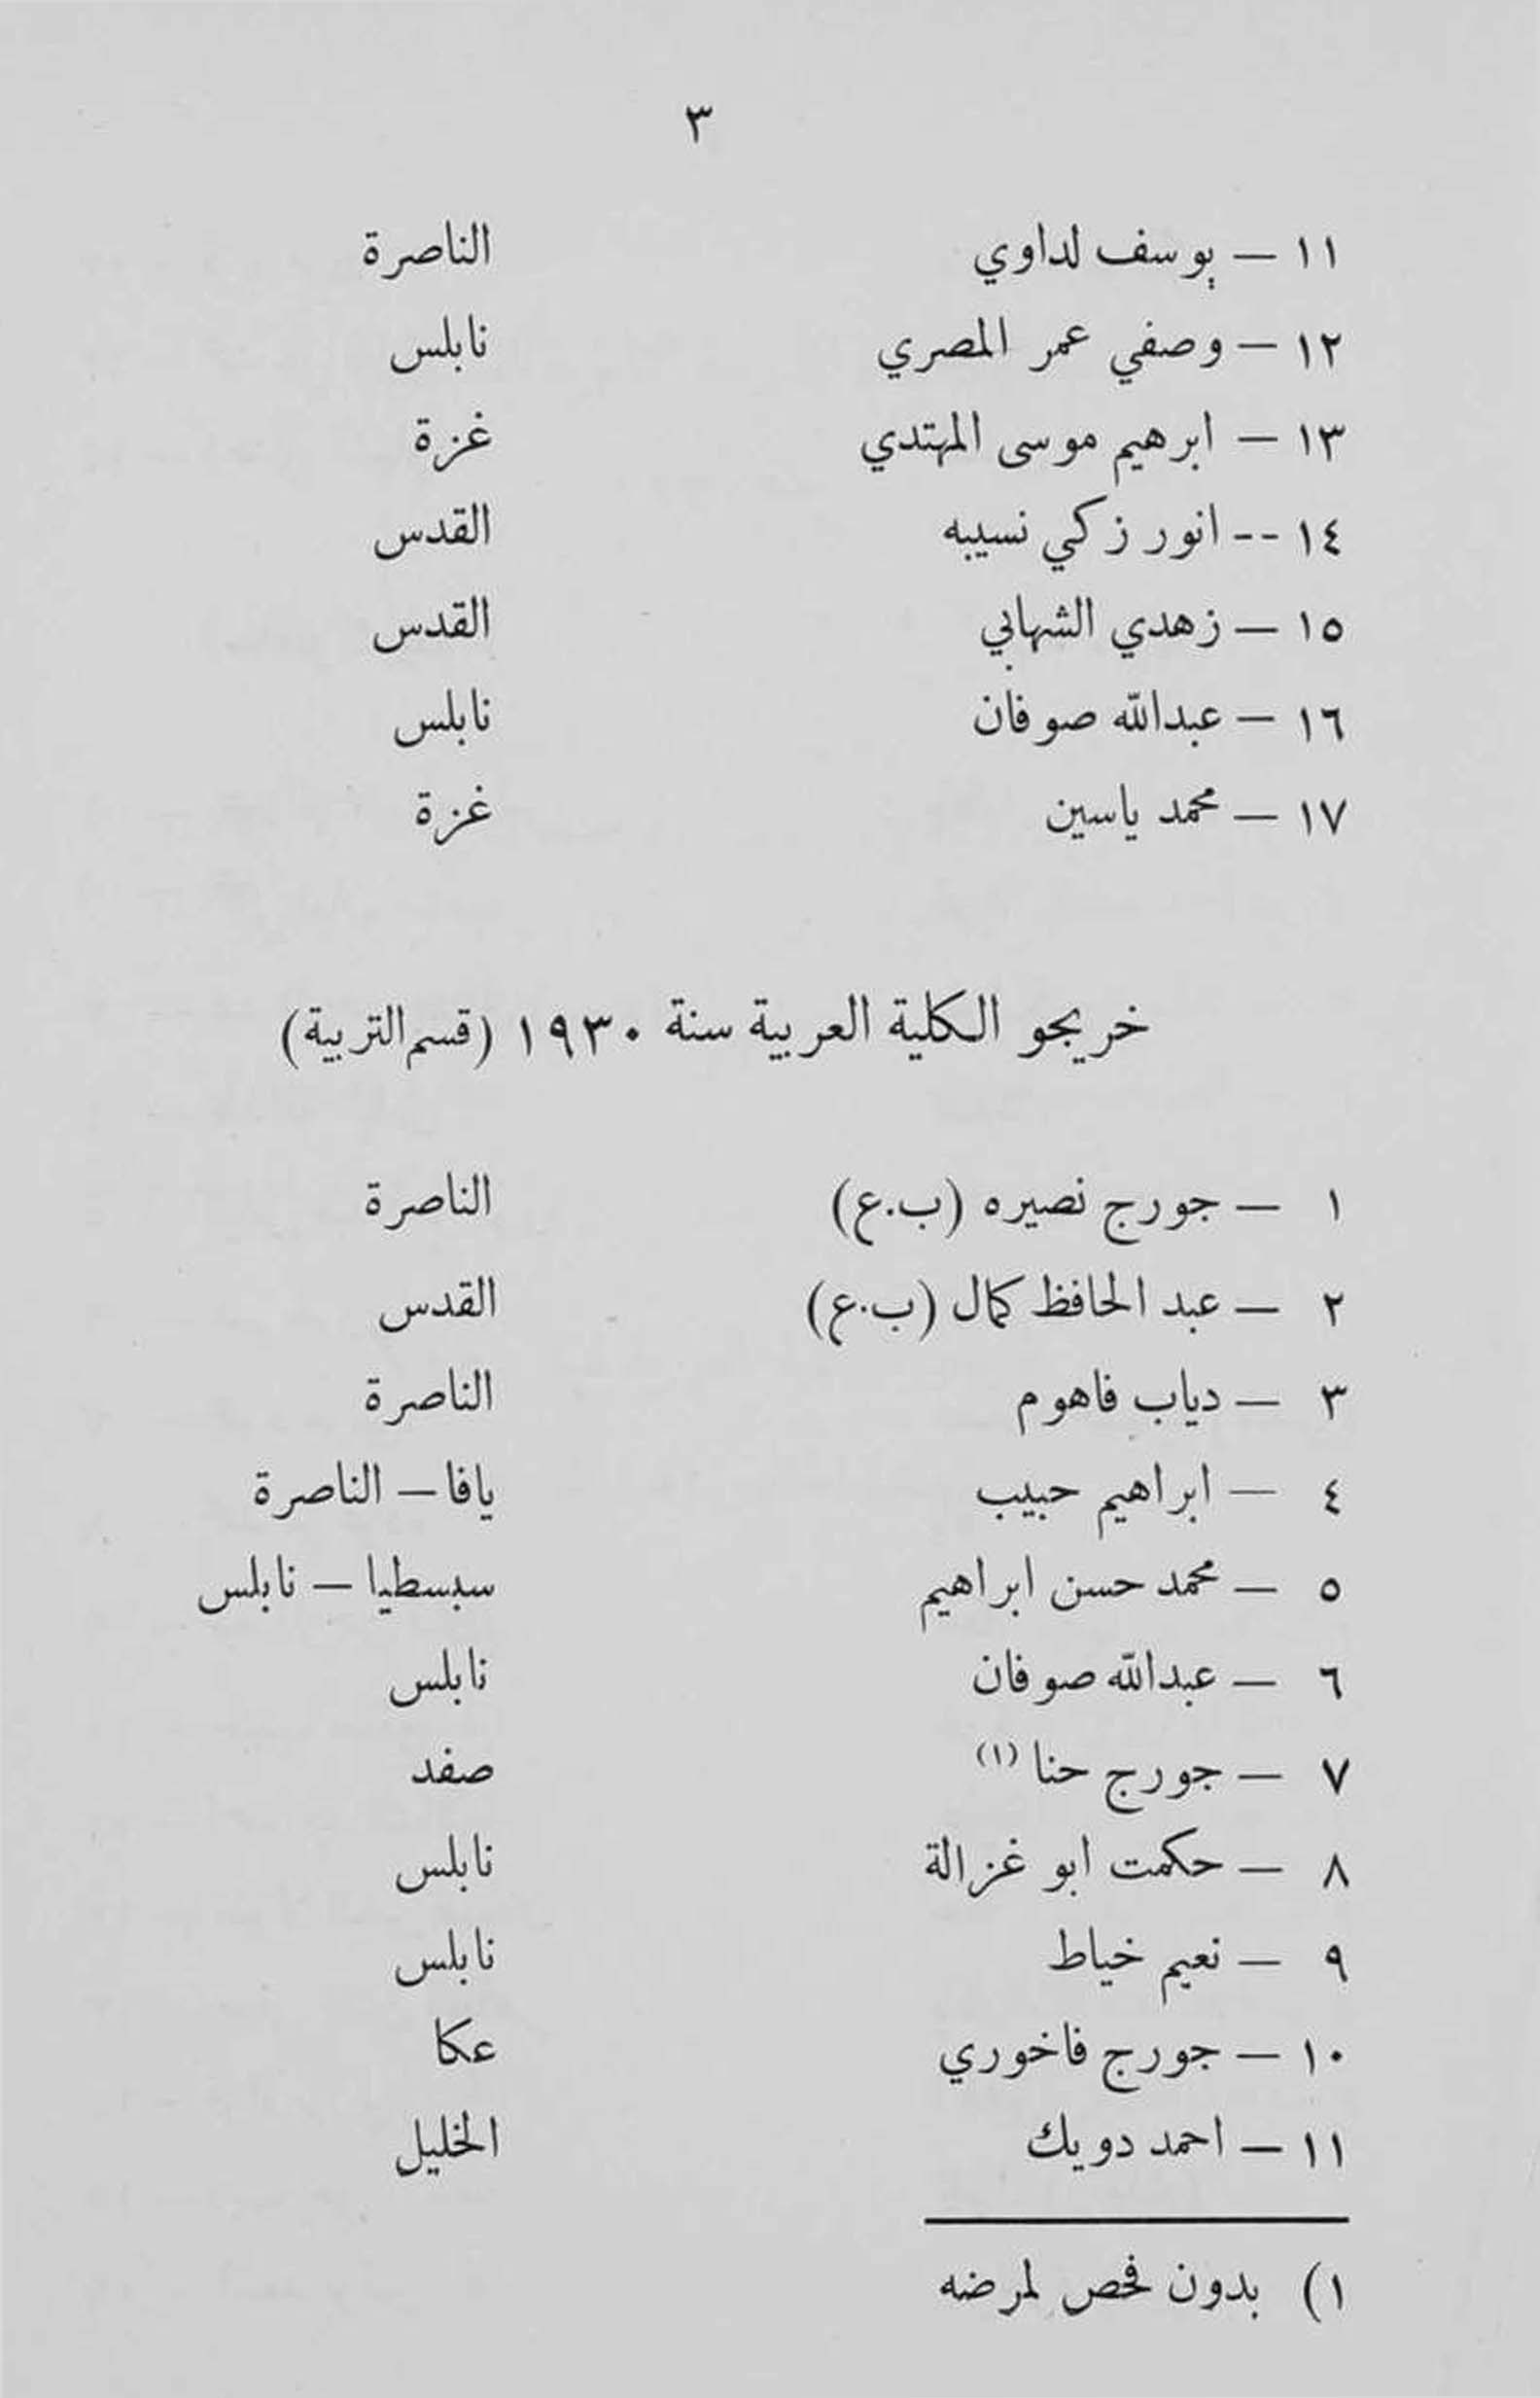 ٣
١١ — يوسف لداوي الناصرة
١٢ — وصفي عمر المصري نابلس
١٣ — ابرهيم موسى المهتدي غزة
١٤ -- انور زكي نسيبه القدس
١٥ — زهدي الشهابي القدس
١٦ — عبدالله صوفان نابلس
١٧ — محمد ياسين غزة
خريجو الكلية العربية سنة ١٩٣٠ (قسم التربية)
١ — جورج نصيره (ب.ع) الناصرة
٢ — عبد الحافظ كمال (ب.ع) القدس
٣ — دياب فاهوم الناصرة
٤ — ابراهيم حبيب يافا — الناصرة
٥ — محمد حسن ابراهيم سبسطيا — نابلس
٦ — عبدالله صوفان نابلس
٧ — جورج حنا (١) صفد
٨ — حكمت ابو غزالة نابلس
٩ — نعيم خياط نابلس
١٠ — جورج فاخوري عكا
١١ — احمد دويك الخليل
١) بدون فحص لمرضه